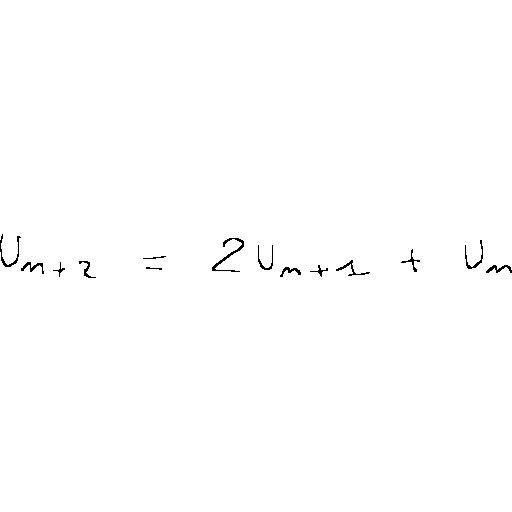 U_{n+2} = 2U_{n+1} + U_n